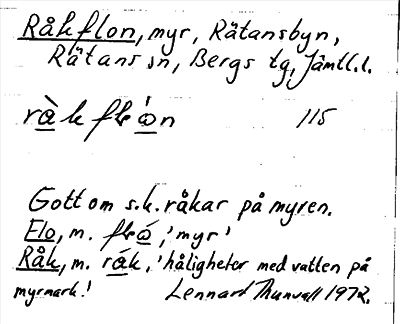 Råkflon, myr, Rätansbyn,
Rätans sn, Bergs tg, Jämtl.l.
råkflån 115
Gott om s.k. råkar på myren.
Flo, m. flå, 'myr'
Råk, m. råk, 'håligheter med vatten på
myrmark! Lennart Thunvall 1972.